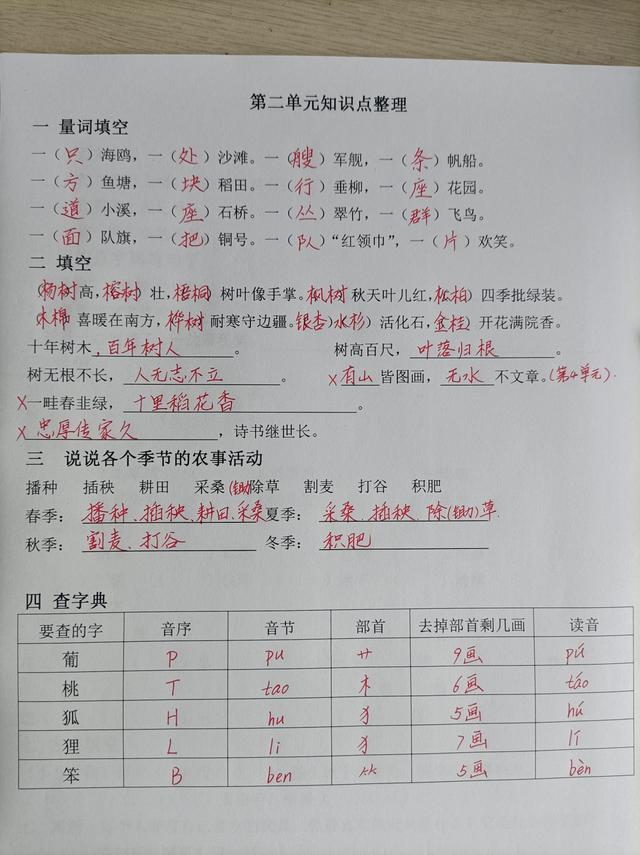 第二单元知识点整理
一 量词填空
一（只）海鸥，一（处）沙滩。一（艘）军舰，一（条）帆船。
一（方）鱼塘，一（块）稻田。一（行）垂柳，一（座）花园。
一（道）小溪，一（座）石桥。一（丛）翠竹，一（群）飞鸟。
一（面）队旗，一（把）铜号。一（队）“红领巾”，一（片）欢笑。
二 填空
（杨树）高，榕树）壮，梧桐）树叶像手掌。枫树 秋天叶儿红，松柏）四季披绿装。
木棉 喜暖在南方，桦树 耐寒守边疆。银杏）水杉）活化石，金桂）开花满院香。
十年树木，百年树人。 树高百尺，叶落归根。
树无根不长，人无志不立。 x有山皆图画，无水不文章。（第4单元）.
x一畦春韭绿，十里稻花香。
x忠厚传家久，诗书继世长。
三 说说各个季节的农事活动
播种 插秧 耕田 采桑 (锄)除草 割麦 打谷 积肥
春季：播种、插秧、耕田、采桑 夏季：采桑、插秧、除(锄)草
秋季：割麦、打谷 冬季：积肥
四 查字典
要查的字 音序 音节 部首 去掉部首剩几画 读音
葡 P pu 艹 9画 pú
桃 T tao 木 6画 táo
狐 H hu 犭 5画 hú
狸 L li 犭 7画 lí
笨 B ben ⺮ 5画 bèn